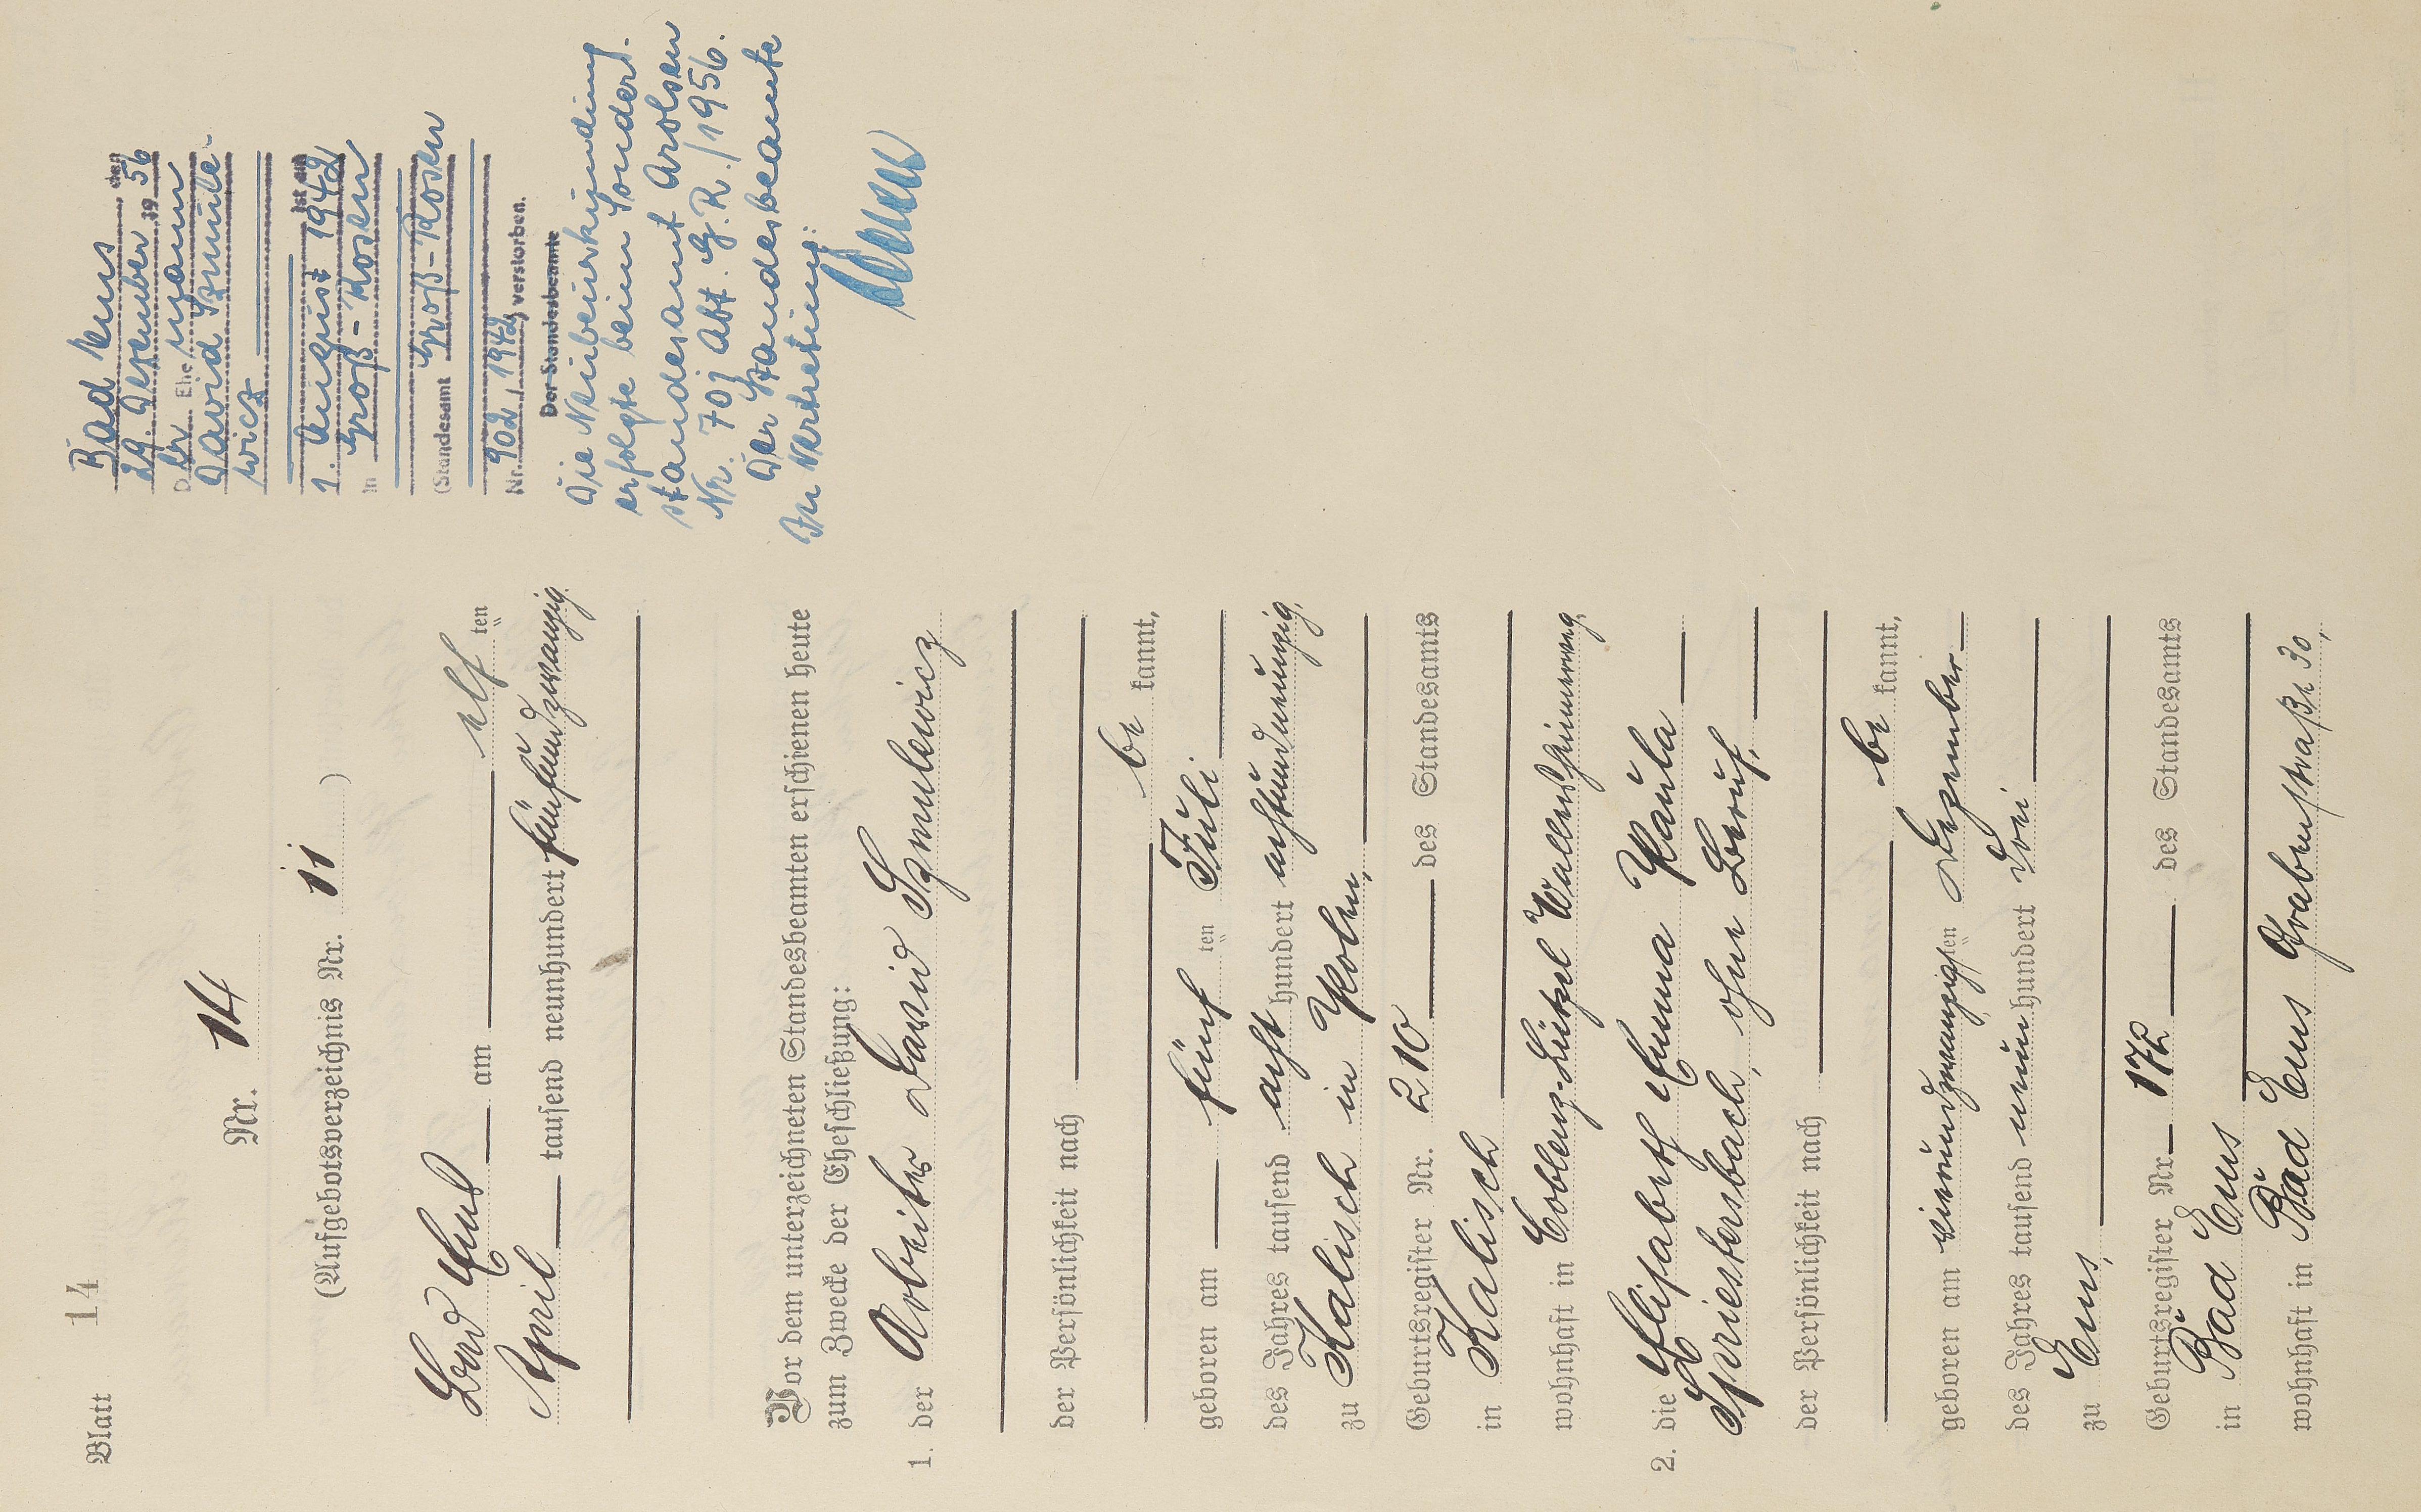 Blatt 14
Nr. 14
(Aufgebotsverzeichnis Nr. 11)
Bad Ems am elf ten
April tausend neunhundert fünfundzwanzig
Vor dem unterzeichneten Standesbeamten erschienen heute
zum Zwecke der Eheschließung:
1. der Arbeiter David Szmulewicz
der Persönlichkeit nach
be kannt,
geboren am fünf ten Juli
des Jahres tausend acht hundert achtundneunzig,
zu Kalisch in Polen,
Geburtsregister Nr. 210 des Standesamts
in Kalisch
wohnhaft in Coblenz-Lützel Wallersheimerweg
2. die Elisabeth Emma Paula
Spriestersbach, ohne Beruf,
der Persönlichkeit nach
be kannt,
geboren am einundzwanzigsten Dezember
des Jahres tausend neun hundert drei
zu Ems,
Geburtsregister Nr. 172 des Standesamts
in Bad Ems
wohnhaft in Bad Ems Grabenstraße 30,
Bad Ems, den
29. Dezember 1956
Der Ehemann
David Szmule-
wicz
ist am
1. August 1942
in Groß-Rosen
(Standesamt Groß-Rosen
Nr. 902/1942) verstorben.
Der Standesbeamte
Die Neubeurkundung
erfolgte beim Sonder-
standesamt Arolsen
Nr. 701 Abt. G.R./1956.
Der Standesbeamte
In Vertretung: